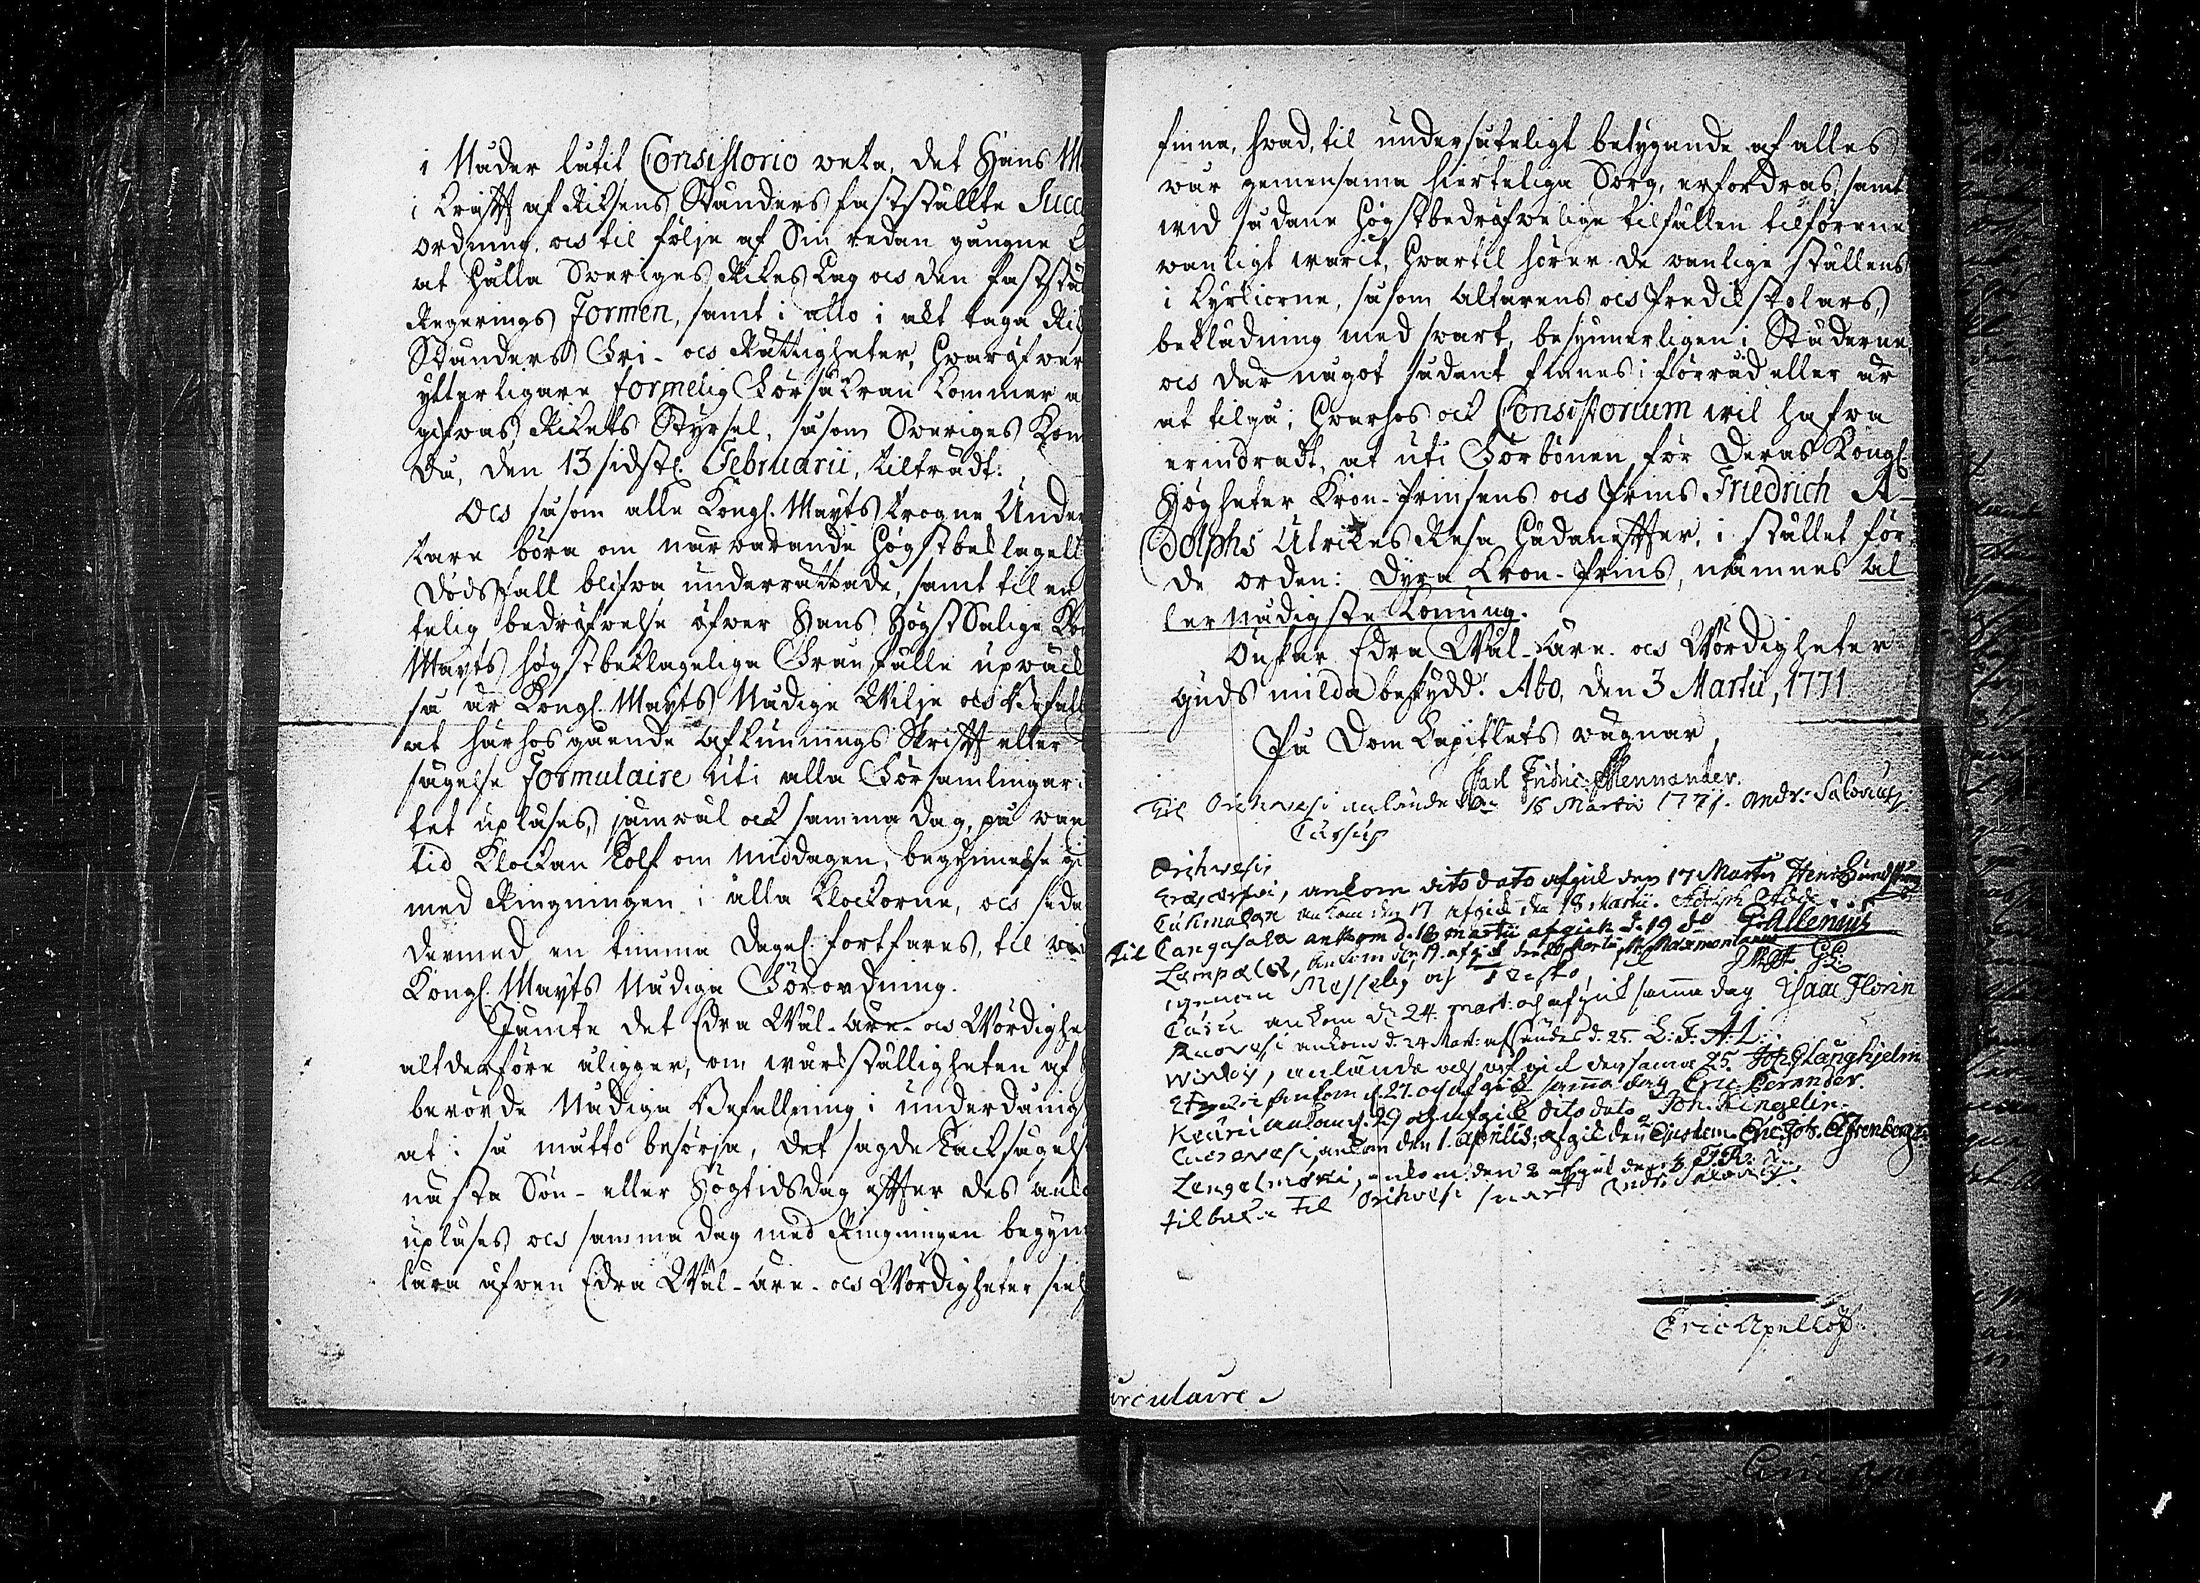 i Nåder låtit Consistorio veta, det Hans M
i kraft af Riksens Ständers fastställte Succ
ordning, och til följe af Sin redan gångne
at hålla Sveriges Rikes Lag och den faststä
Regerings Formen, samt i allo i akt taga Rik
Ständers Fri- och Rättigheter, hvaröfwer
ytterligare formelig Försäkran kommer a
gifwas, Rikets Styrsel, såsom Sweriges Kon
Du, den 13 sidstl. Februarii, tilträdt:
Och såsom alle Kongl. Mayts trogne Under
såtare böra om närvarande högstbeklagel
Dödsfall blifwa underrättade, samt til en
telig bedröfwelse öfwer Hans HögstSalige Ko
Mayts högstbeklagelige Frånfälle upwäck
så är Kongl. Mayts Nådige Wilje och Befall
at härhos gående Afkunnings Skrift eller
sägelse Formulaire uti alla Församlingar
tet upläses, jämwäl ock samma dag, på wan
tid Klockan tolf om middagen, begynnelse gi
med Ringningen i alla Klockorne, och seda
dermed en timma dagel. fortfares, til wid
Kongl. Mayts Nådiga Förordning.
Jämte det Edra Wäl-Äre- och Wördighe
altderföre åligger, om wärkställigheten af
berörde Nådiga Befallning i underdånig
at i så måtto besörja, det sagde tacksägels
nästa Sön- eller Högtidsdag efter des ank
upläses och samma dag med Ringningen begyn
lära äfwen Edra Wäl-Äre- och Wördigheter siel
finna, hwad, til undersåteligt betygande af alles
wår gemensama hierteliga Sorg, erfordras, samt
wid sådane högstbedröfwelige tilfällen tilförene
wanligt warit, hwartil hörer de vanlige ställens
i kyrkiorne, såsom Altarens och Predikstolars,
beklädning med swart, besynnerligen i Städerne,
och där något sådant finnes i förråd eller är
at tilgå; Hwarhos ock Consistorium wil hafwa
erindradt, at uti Förbönen för Deras Kongl.
Högheter Kron-Prinsens och Prins Friedrich A-
dolphs Utrikes Resa hädanefter, i stället för
de orden: Dyra Kron-Prins, nämnes Al-
lernådigste Konung.
Önskar Edra Wäl-Äre- och Wördigheter
Guds milda beskydd! Åbo, den 3 Martii, 1771
På Dom Capitlets wägnar,
Carl Fridric Mennander.
Til Orihvesi anlände den 16 Martii 1771. Andr: Salovius
Cursus
Orihvesi
ankom dito dato afgick den 17 Martii Henr:
Cuhmalax ankom den 17 afgick den 18 Martii. Adolph
Til Cangasala ankom d. 18 martii afgick d. 19 do G: Allenius
Lempälä, ankom den 19 afgick den
igenom Messuby och
ankom d. 24 mart. och afgick samma dag Isaac Florin
Ruovesi ankom d. 24 Mart: afsändes d. 25. L: F: A: L:
Wirdois, anlände och afgick den samma 25. Joh: G Laughjelm
ankom d. 27. och afgick samma dag Eric
Keuru anlände 29 och afgick dito dato Joh. Ringelin.
ankom den 1. Aprilis; afgick den Eric Joh.
Lengelmäki, ankom den 2 afgick den 3 J. R.
tilbaka til Orihvesi Andr: Salovius.
Eric Apelloff.
irculaire